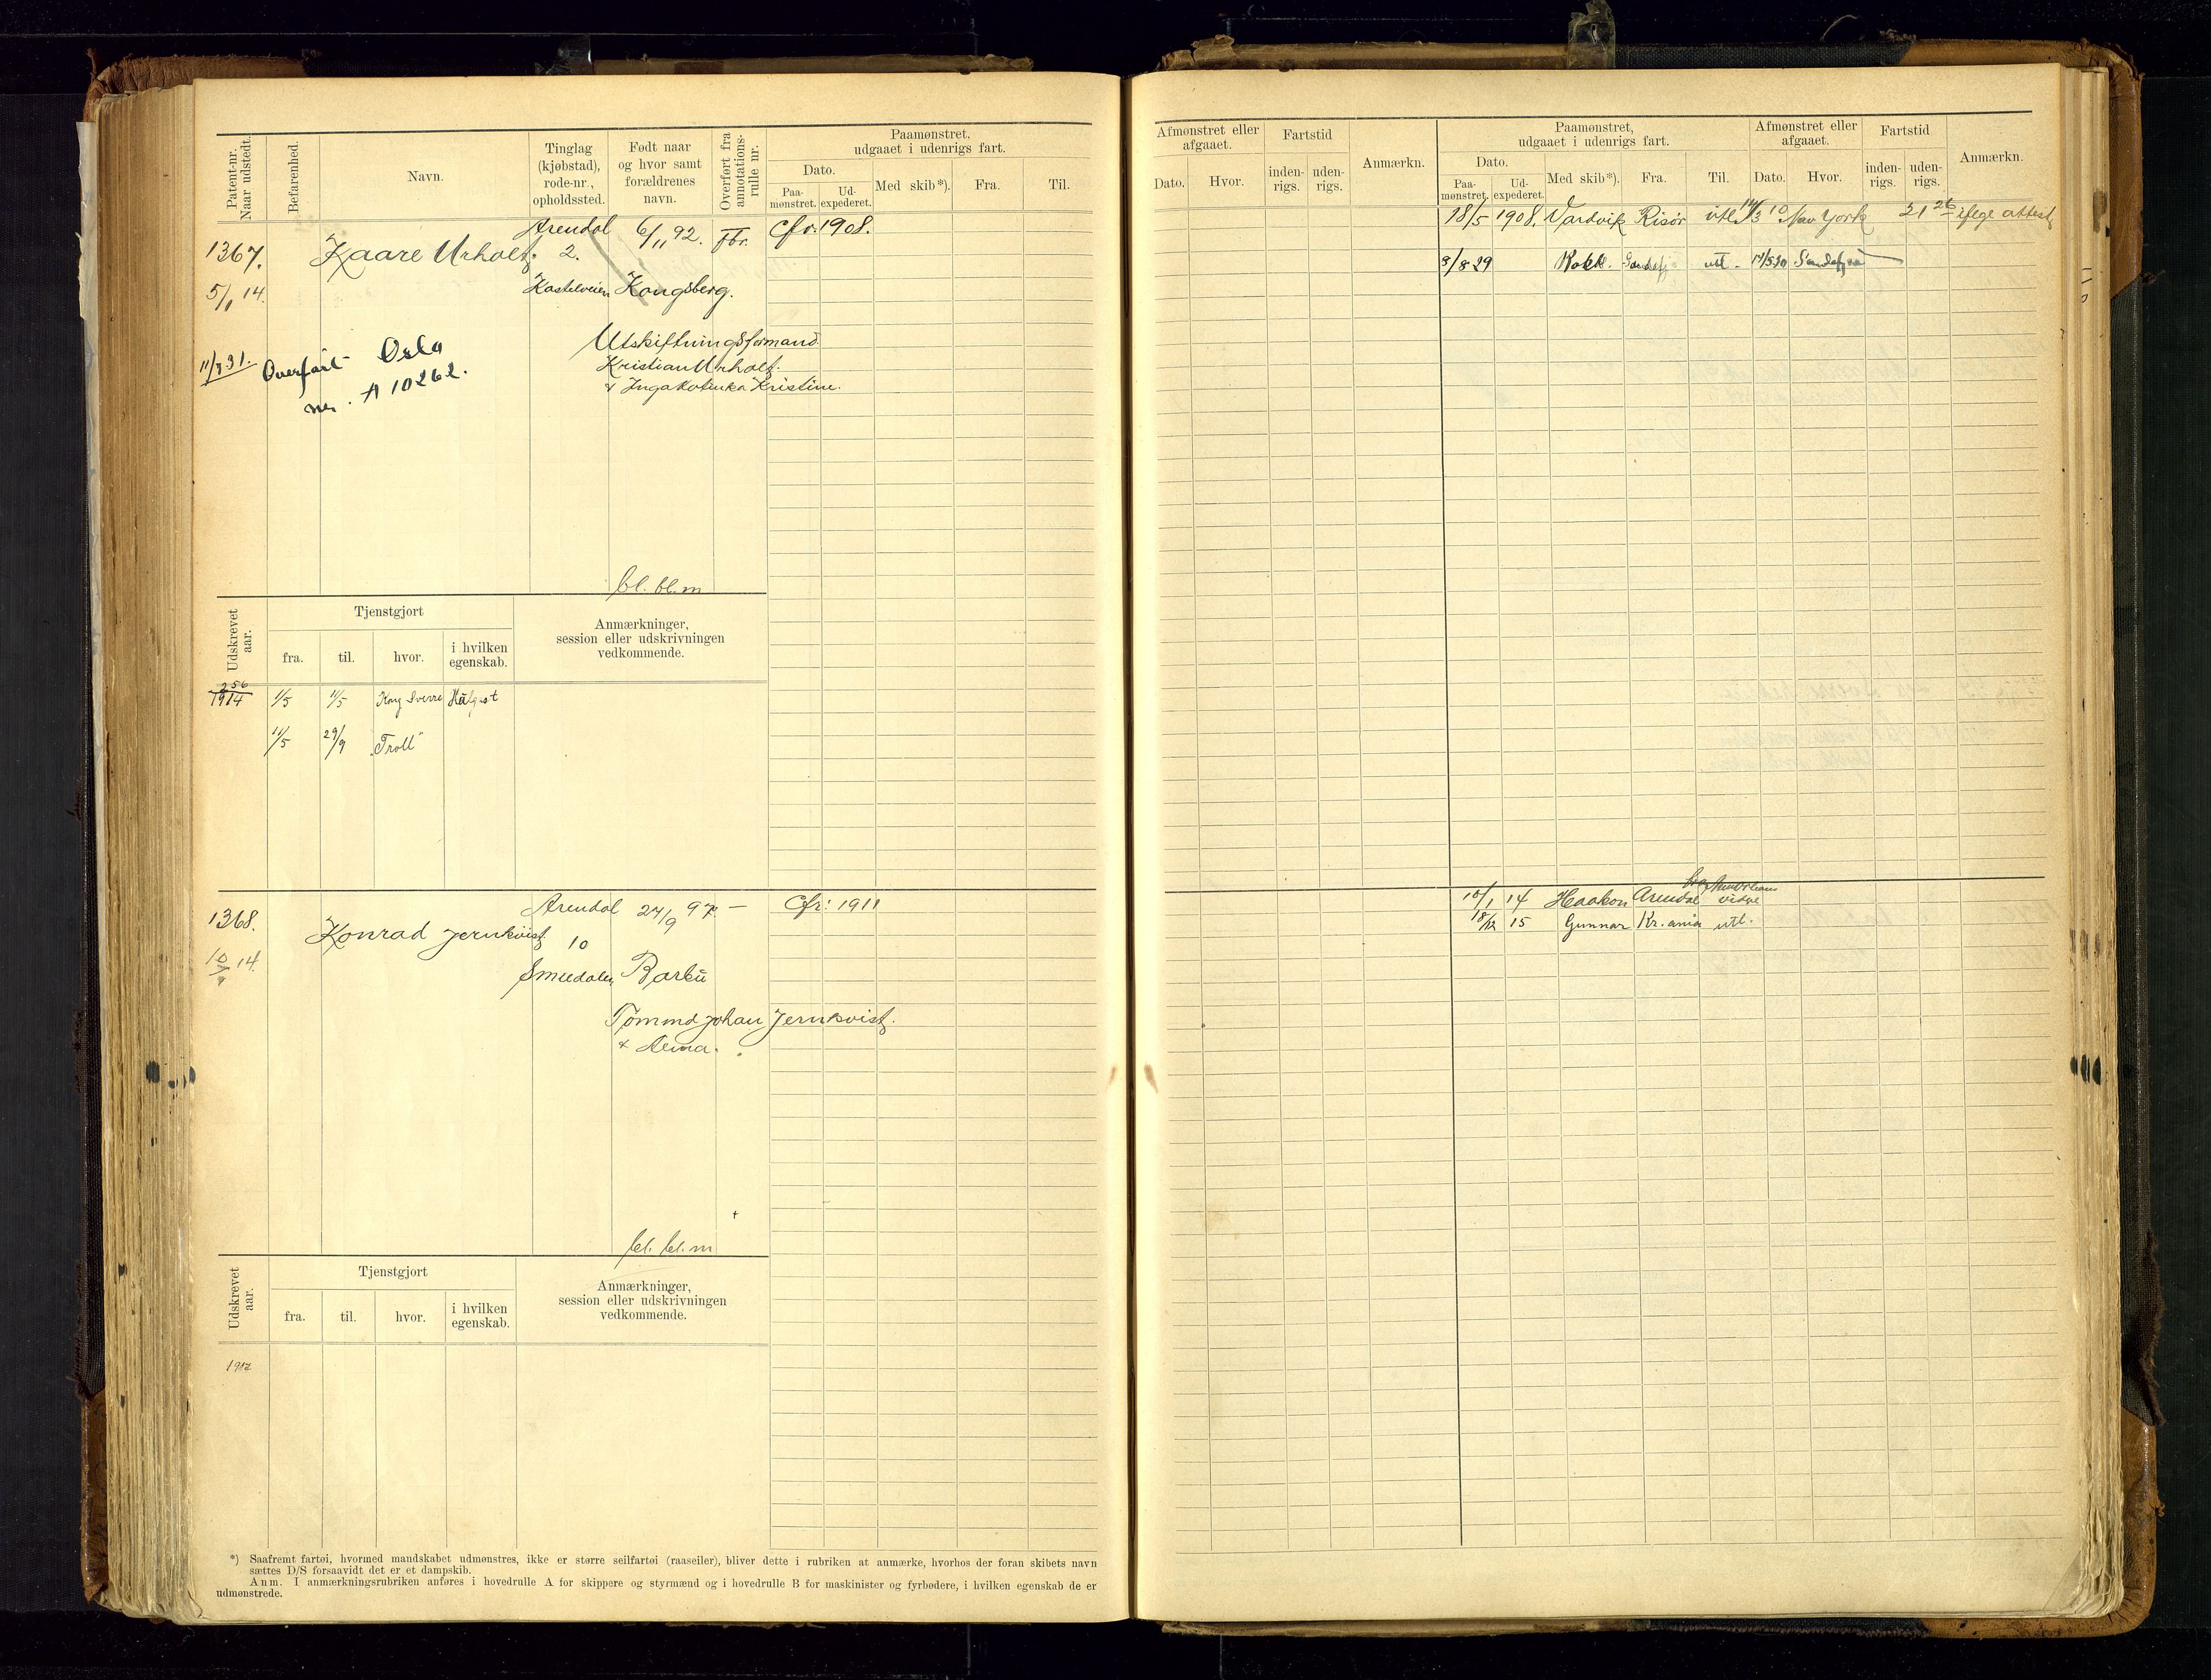 Patent-nr. Naar udstedt.
Befarenhed.
Navn.
Tinglag (kjøbstad), rode-nr., opholdssted.
Født naar og hvor samt forældrenes navn.
Overført fra annotations-rulle nr.
Paamønstret, udgaaet i udenrigs fart.
Dato.
Paa-mønstret.
Ud-expederet.
Med skib*).
Fra.
Til.
1367.
5/1 14.
Kaare Urholt.
Arendal
2.
Kastelveien
6/11 92.
Kongsberg.
Fbr.
Cfr. 1908.
Utskiftningsformand
Kristian Urholt.
& Inga Katinka Kristine.
11/3 31. Overført Oslo
nr. A 10262.
bl. bl. m
Udskrevet aar.
Tjenstgjort
fra.
til.
hvor.
i hvilken egenskab.
Anmærkninger, session eller udskrivningen vedkommende.
256
1914 1/5 11/5 Kong Sverre
11/5 29/9 „Troll"
1368.
10/1 14.
Konrad Jernkvist
Arendal
10
Smedalen
24/9 97. —
Barbu
Cfr: 1911
Tømmd Johan Jernkvist.
& Alma.
bl. bl. m
Udskrevet aar.
Tjenstgjort
fra.
til.
hvor.
i hvilken egenskab.
Anmærkninger, session eller udskrivningen vedkommende.
1917
*) Saafremt fartøi, hvormed mandskabet udmønstres, ikke er større seilfartøi (raaseiler), bliver dette i rubriken at anmærke, hvorhos der foran skibets navn
sættes D/S forsaavidt det er et dampskib.
Anm. I anmærkningsrubriken anføres i hovedrulle A for skippere og styrmænd og i hovedrulle B for maskinister og fyrbødere, i hvilken egenskab de er
udmønstrede.
Afmønstret eller afgaaet.
Dato.
Hvor.
Fartstid
inden-rigs.
uden-rigs.
Anmærkn.
Paamønstret, udgaaet i udenrigs fart.
Dato.
Paa-mønstret.
Ud-expederet.
Med skib*).
Fra.
Til.
Afmønstret eller afgaaet.
Dato.
Hvor.
Fartstid
inden-rigs.
uden-rigs.
Anmærkn.
18/5 1908. Vardvik Risør utl 14/3 10 New York 21 26 iflge attest
8/8 29 Kokk. Sandefj utl. Sandefjord
10/1 14 Haakon Arendal
18/12 15 Gunnar Kr.ania utl.